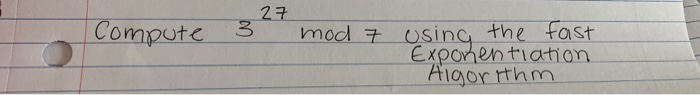 Compute 3^27 mod 7 using the fast
Exponentiation
Algorithm